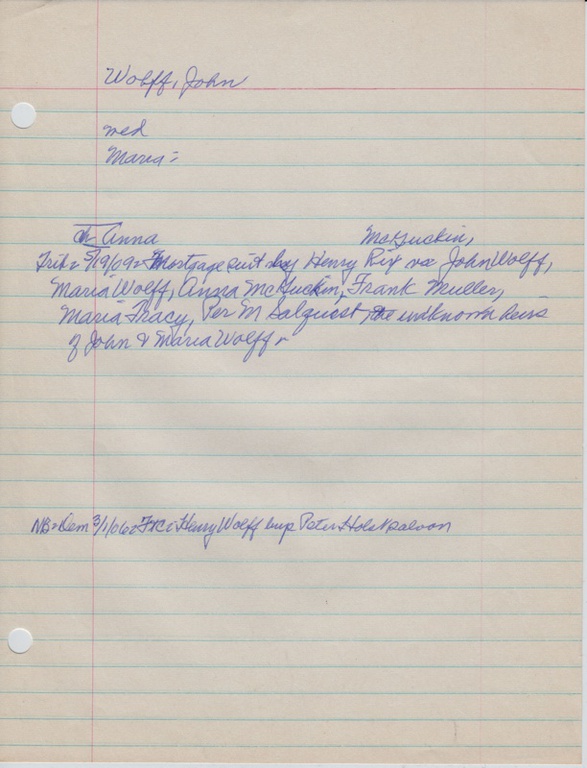 Wolff, John
med
Maria =
ch Anna McGuckin,
Trib = 5/19/09 = Mortgage suit by Henry Rix vs John Wolff,
Maria Wolff, Anna McGuckin, Frank Muller,
Maria Tracy, Per M Salquest, the unknown heirs
of John & Maria Wolff
NB = Dem 3/1/06 = Henry Wolff buys Peter Holst saloon